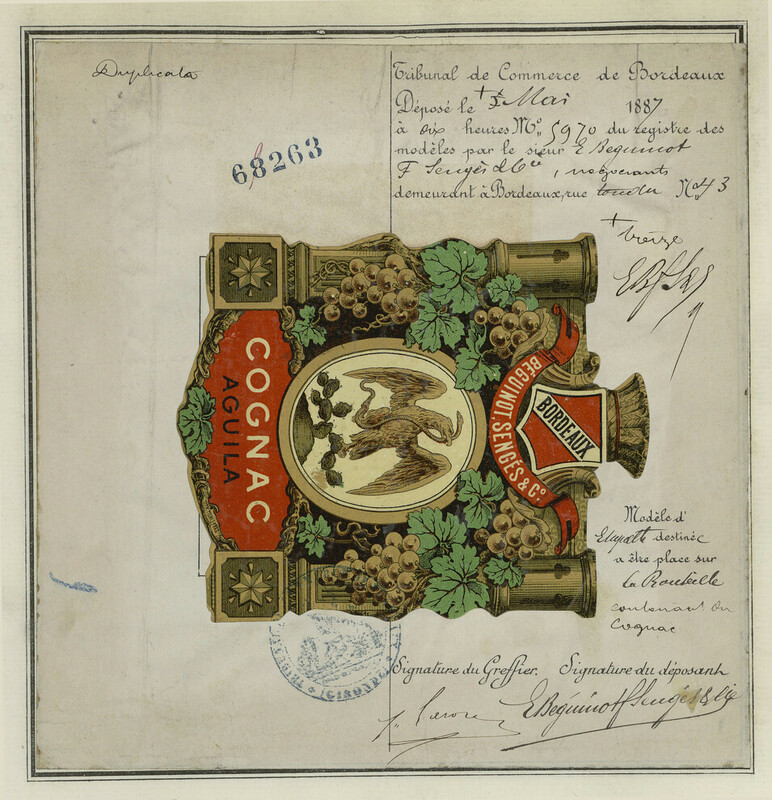 Duplicata
68263
Tribunal de Commerce de Bordeaux
Déposé le Mai 1887
à dix heures M. N° 5970 du registre des
modèles par le sieur E Beguinot
F Sengès & Cie, négociants
demeurant à Bordeaux, rue N° 43
treize
COGNAC
AGUILA
BÉGUINOT, SENGÉS & Co.
BORDEAUX
Modèle d'
destinée
a être place sur
la Bouteille
contenant du
Cognac
TRIBUNAL
(GIRONDE)
Signature du Greffier. Signature du déposant
E Béguinot F Sengès & Cie